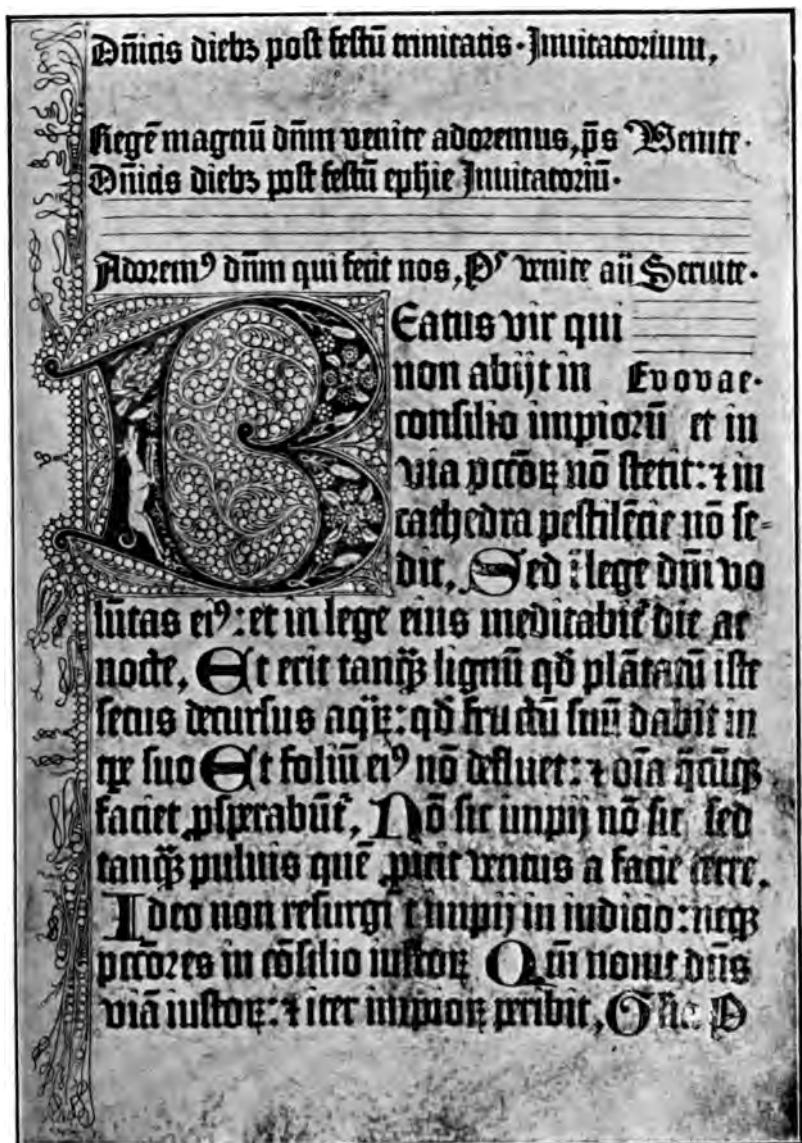 Dn̄icis diebꝫ post festū trinitatis · Inuitatorium,
Regē magnū dn̄m venite adoremus, p̄s Venite ·
Dn̄icis diebꝫ post festū ephie Inuitatoriū ·
Adoremꝰ dn̄m qui fecit nos, Ps venite an̄ Seruite ·
Beatus vir qui
non abijt in Evovae ·
consilio impioꝝū et in
via pccōꝝ nō stetit: ⁊ in
cathedra pestilēcie nō se⸗
dit, Sed ī lege dn̄i vo
lūtas eiꝰ: et in lege eius meditabit᷑ die ac
nocte, Et erit tanqꝫ lignū qd̄ plātatū iste
secus decursus aqꝝ: qd̄ fructū suū dabit in
tꝑe suo Et foliū eiꝰ nō defluet: ⁊ oīa q̄cūqꝫ
faciet ꝓsperabūt᷑, Nō sic impij nō sic sed
tanqꝫ puluis quē ꝓicit ventus a facie terre,
Ideo non resurgūt impij in iudicio: neqꝫ
pccōres in cōsilio iustoꝝ Qm̄ nouit dn̄s
viā iustoꝝ: ⁊ iter impioꝝ peribit, Glia P